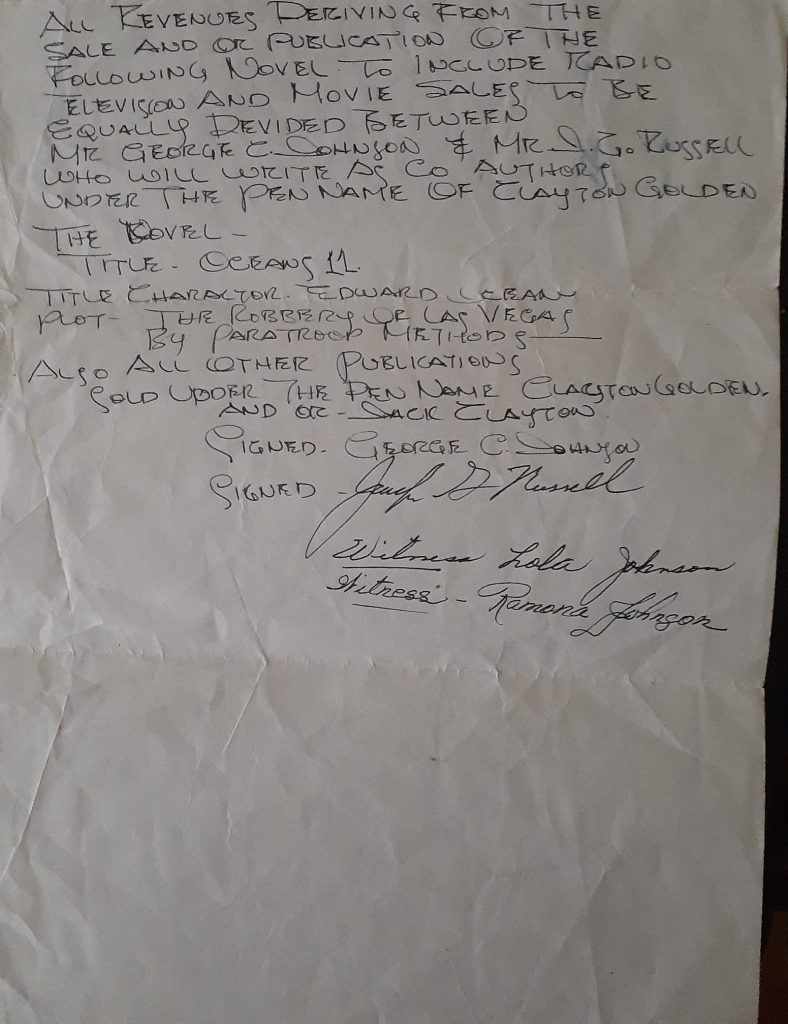 ALL REVENUES DERIVING FROM THE
SALE AND OR PUBLICATION OF THE
FOLLOWING NOVEL. TO INCLUDE RADIO
TELEVISION AND MOVIE SALES TO BE
EQUALLY DEVIDED BETWEEN
MR GEORGE C. JOHNSON & MR. J. G. RUSSELL
WHO WILL WRITE AS CO AUTHORS
UNDER THE PEN NAME OF CLAYTON GOLDEN
THE NOVEL -
TITLE - OCEANS 11.
TITLE CHARACTOR. EDWARD OCEAN
PLOT - THE ROBBERY OF LAS VEGAS
BY PARATROOP METHODS
ALSO ALL OTHER PUBLICATIONS
SOLD UDDER THE PEN NAME CLAYTON GOLDEN.
AND OR - JACK CLAYTON.
SIGNED. GEORGE C. JOHNSON
SIGNED - G Russell
Witness Lola Johnson
Witness - Ramona Johnson